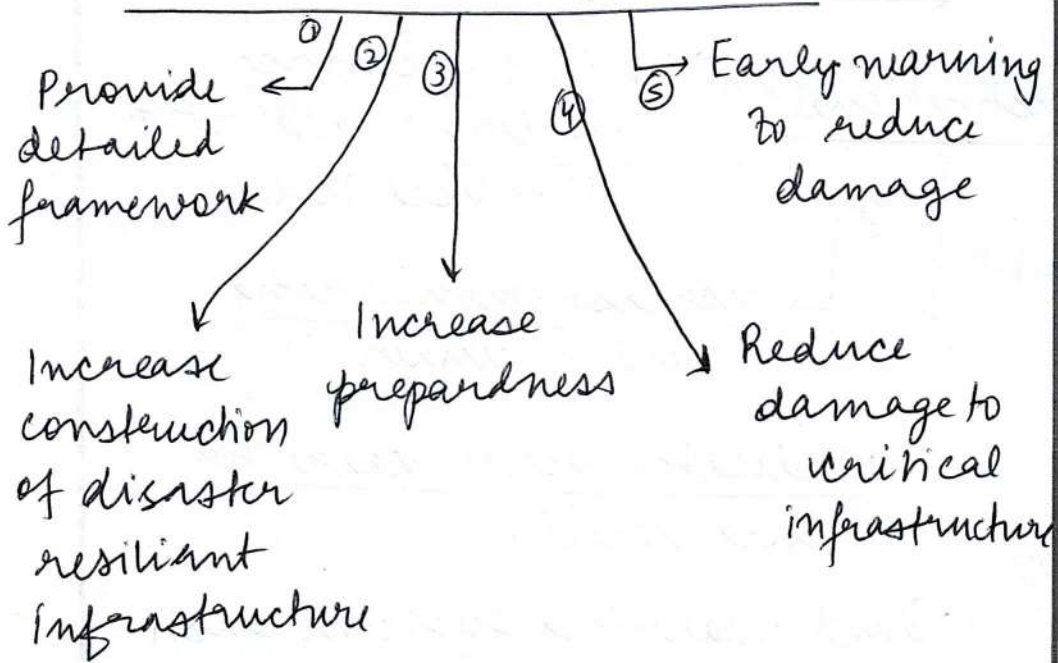 ①
Provide
detailed
framework
②
Increase
construction
of disaster
resiliant
infrastructure
③
Increase
prepardness
④
Reduce
damage to
critical
infrastructure
⑤
Early warning
to reduce
damage